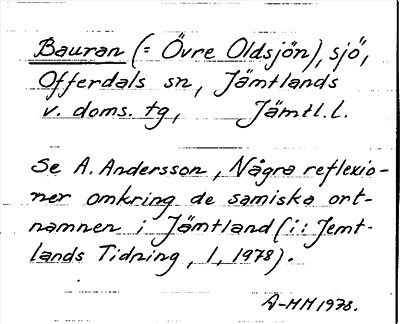 Bauran (= Övre Oldsjön), sjö,
Offerdals sn, Jämtlands
v. doms. tg, Jämtl.l.
Se A. Andersson, Några reflexio-
ner omkring de samiska ort-
namnen i Jämtland (i: Jemt-
lands Tidning, 1, 1978).
A-MH 1978.